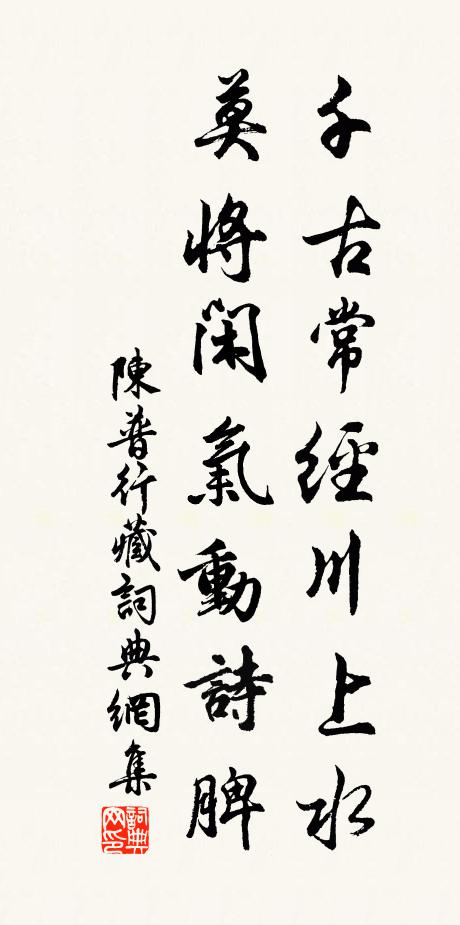 千古常經川上水
莫將閑氣動詩脾
陳普行藏詞典網集
詞典網印